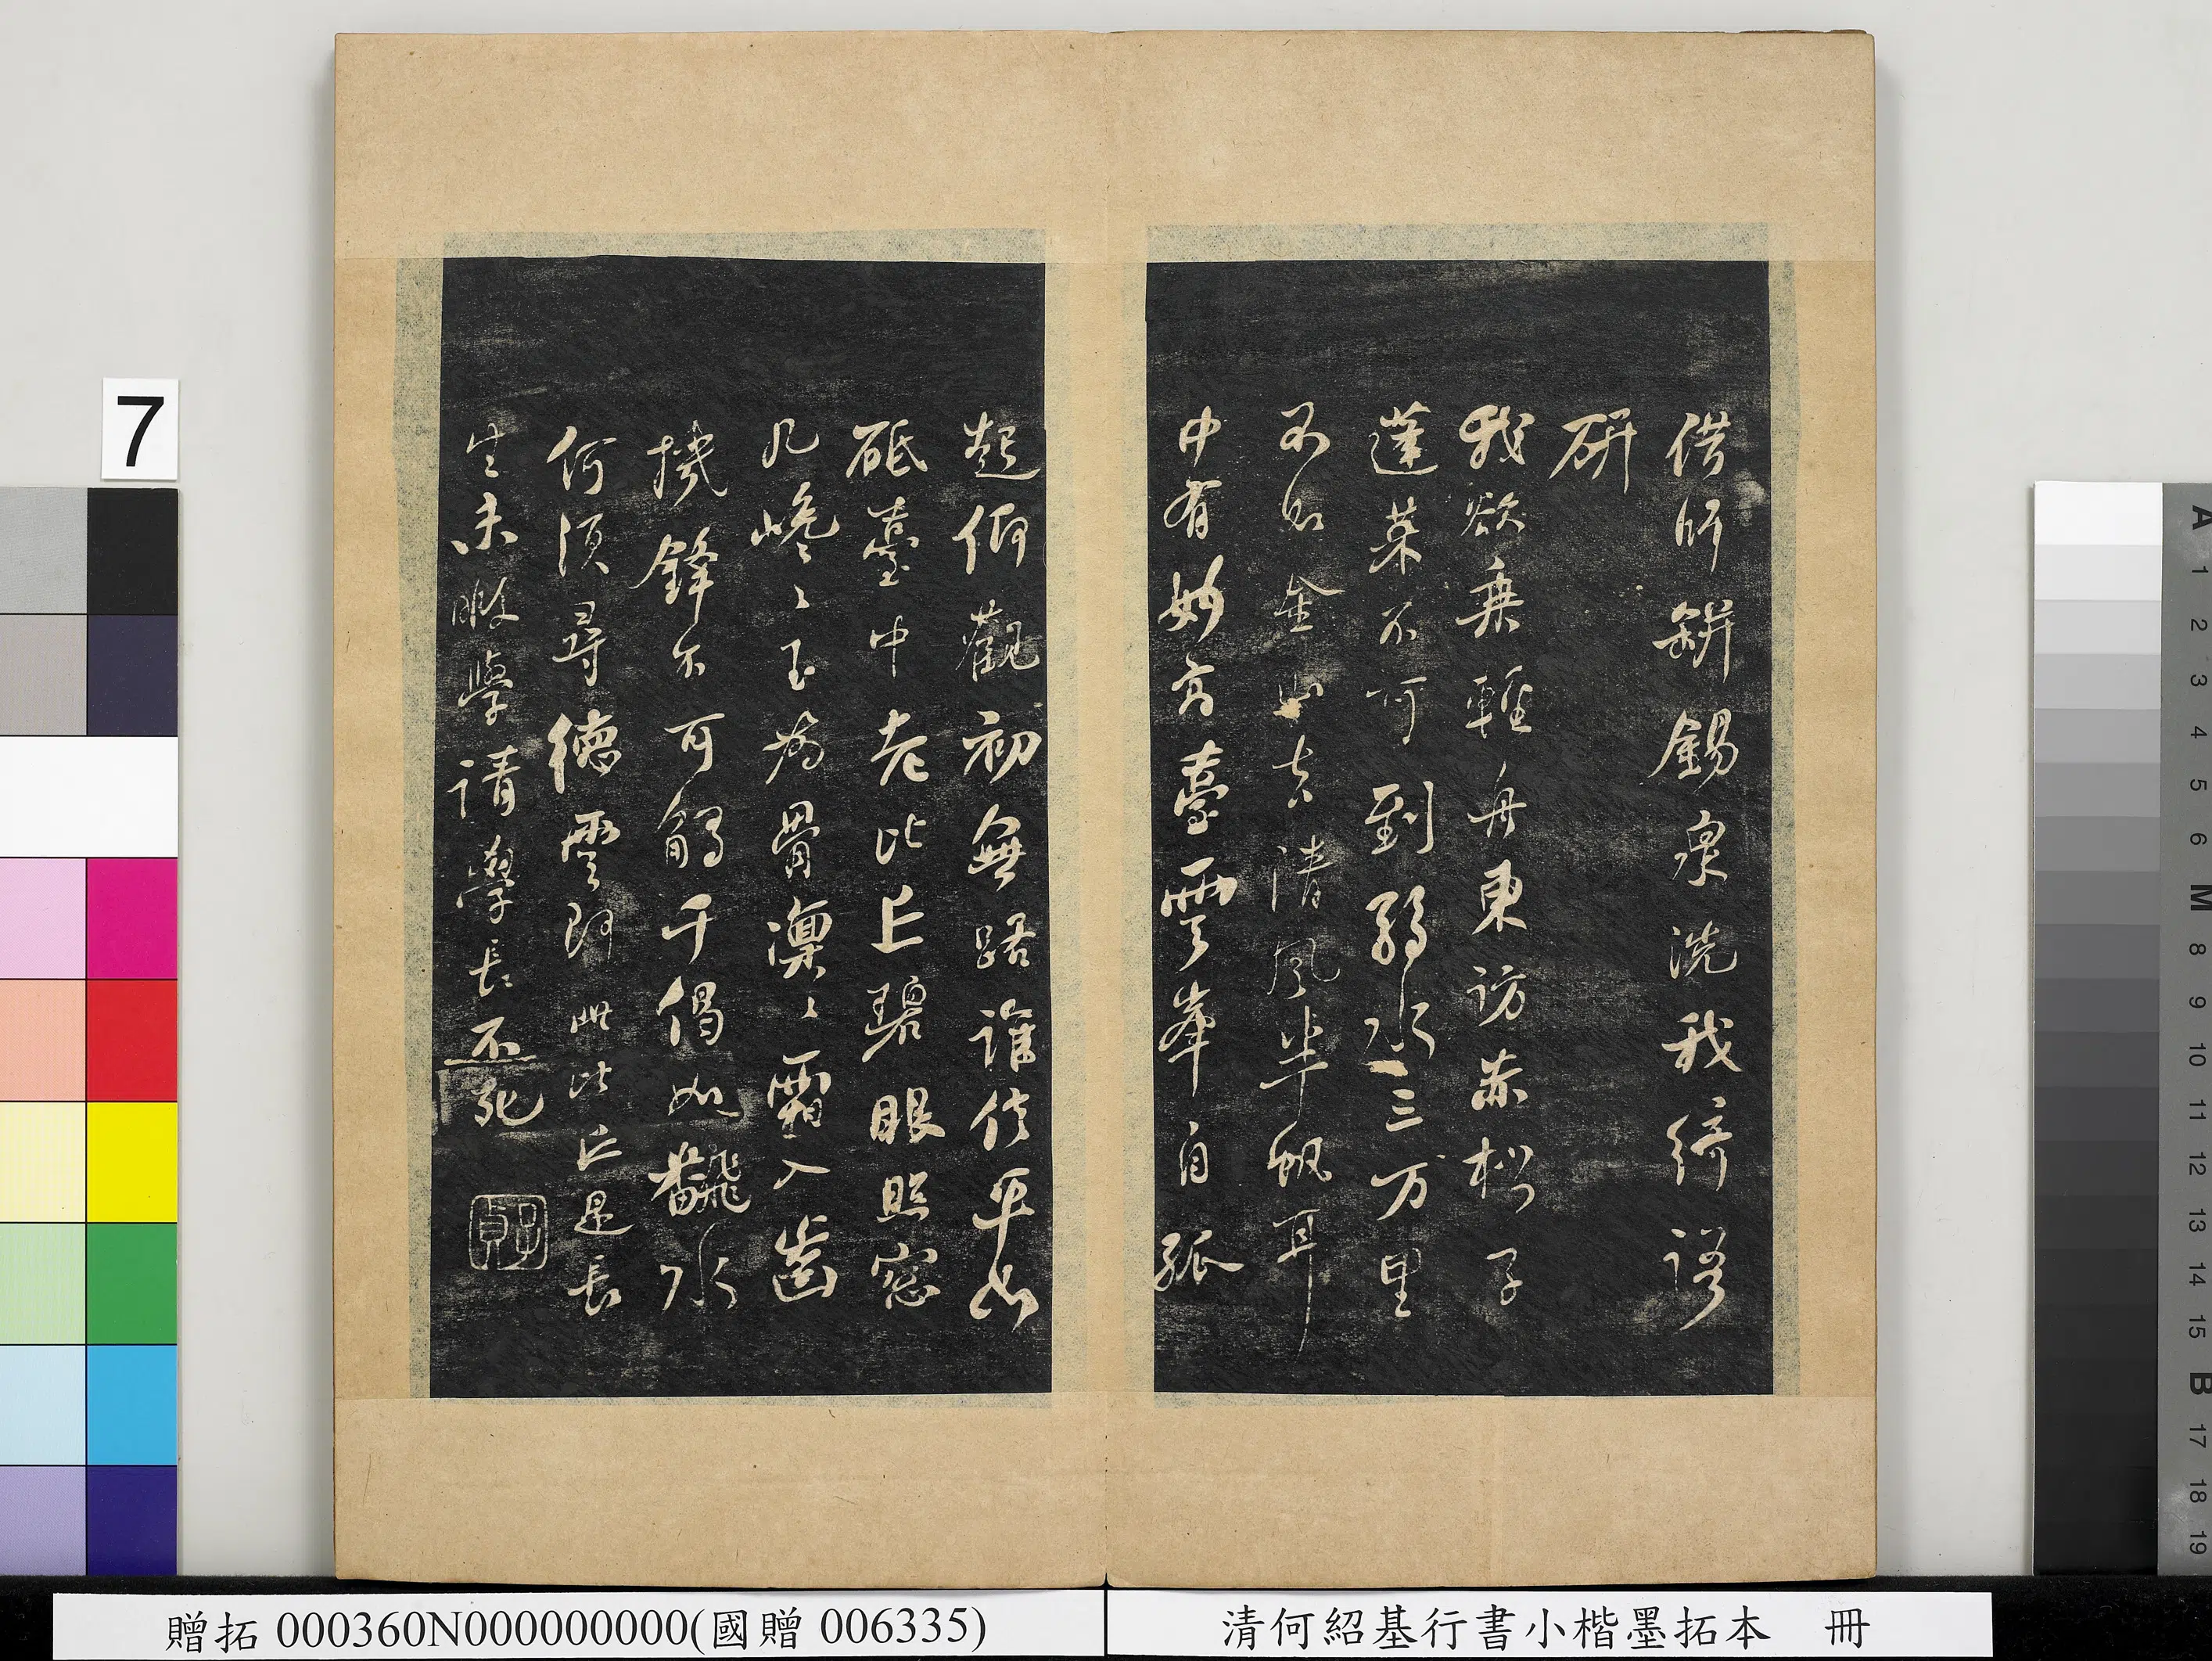 借師缾錫泉洗我綺語
研
我欲乘輕舟東訪赤松子
蓬萊不可到弱水三万里
不如金山去清風半帆耳
中有妙高臺雲峯自孤
起仰觀初無路誰信平如
砥臺中老比丘碧眼照窓
几巉〻玉為骨凜〻霜入齒
機鋒不可觸千偈如飜水
何須尋德雲即此比丘是長
生未暇學請學長不死
子貞
7
A 1 2 3 4 5 6 M 8 9 10 11 12 13 14 15 B 17 18 19
清何紹基行書小楷墨拓本 冊
贈拓 000360N000000000(國贈 006335)